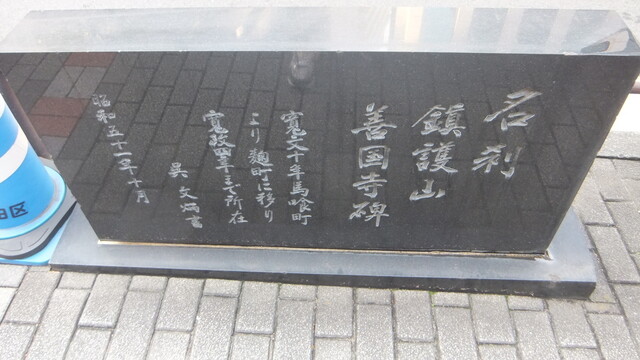 名刹
鎮護山
善国寺碑
寛文十年馬喰町
より麹町に移り
寛政四年まで所在
呉文炳書
昭和五十一年十月
田区